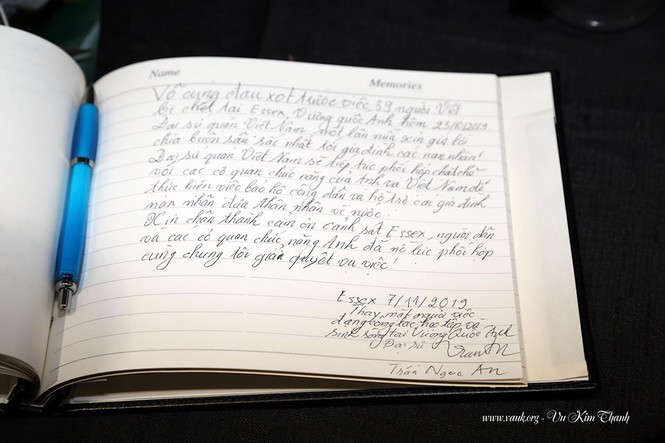 Name Memories
Vô cùng đau xót trước việc 39 người Việt
bị chết tại Essex, Vương quốc Anh hôm 23/10/2019
Đại sứ quán Việt Nam một lần nữa xin gửi lời
chia buồn sâu sắc nhất tới gia đình các nạn nhân!
Đại sứ quán Việt Nam sẽ tiếp tục phối hợp chặt chẽ
với các cơ quan chức năng của Anh và Việt Nam để
thực hiện việc bảo hộ công dân và hỗ trợ các gia đình
nạn nhân đưa thân nhân về nước.
Xin chân thành cảm ơn cảnh sát Essex, người dân
và các cơ quan chức năng Anh đã nỗ lực phối hợp
cùng chúng tôi giải quyết vụ việc!
Essex 7/11/2019
Thay mặt người Việt
đang công tác, học tập và
sinh sống tại Vương Quốc Anh
Đại sứ
Trần Ngọc An
www.vauk.org - Vu Kim Thanh